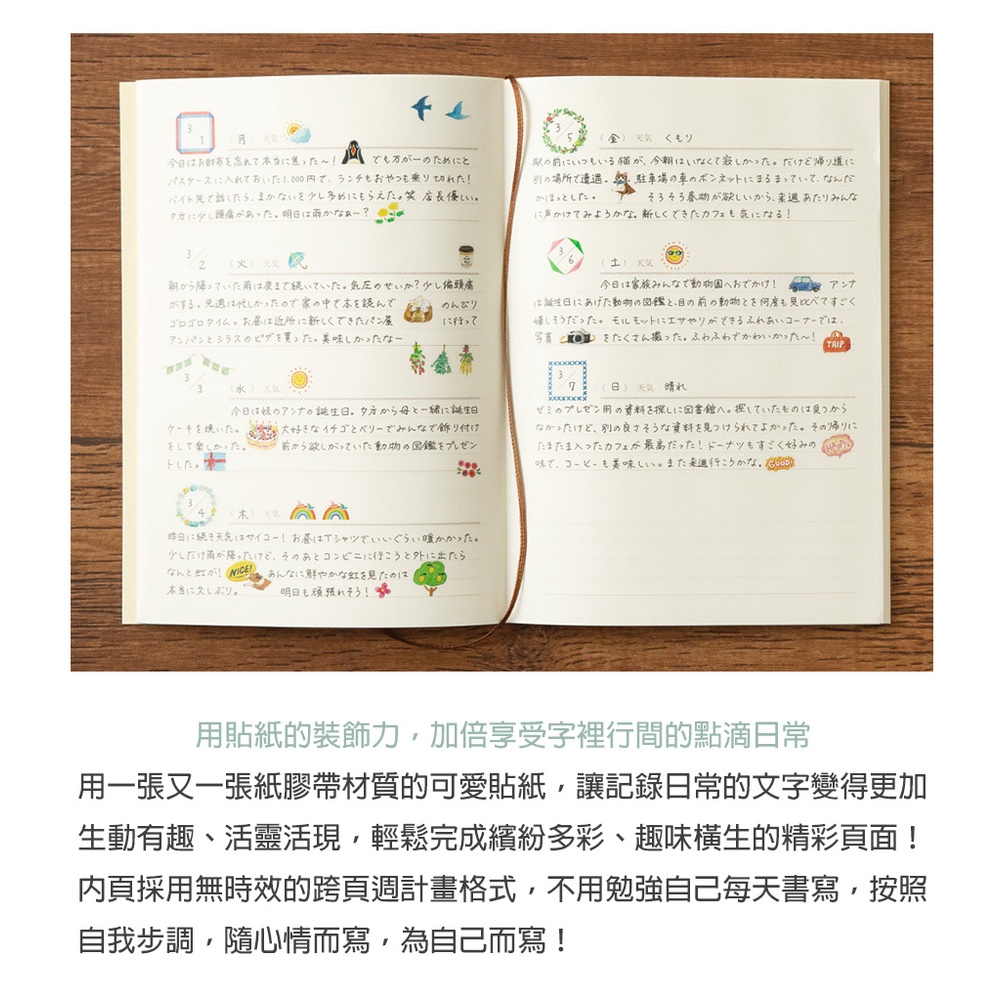 3/1 (月) 天気
今日はお財布を忘れて本当に焦った〜! でも万が一のためにと
パスケースに入れておいた1,000円で、ランチもおやつも乗り切れた!
バイト先で話したら、まかないを少し多めにもらえた。笑 店長優しい。
夕方に少し頭痛があった。明日は雨かなぁ…?
3/2 (火) 天気
朝から降っていた雨は夜まで続いていた。気圧のせいか?少し偏頭痛
がする。先週は忙しかったので家の中で本を読んで のんびり
ゴロゴロタイム。お昼は近所に新しくできたパン屋 に行って
アンパンとシラスのピザを買った。美味しかったなー
3/3 (水) 天気
今日は妹のアンナの誕生日。夕方から母と一緒に誕生日
ケーキを焼いた。 大好きなイチゴとベリーでみんなで飾り付け
をして楽しかった。 前から欲しがっていた動物の図鑑をプレゼン
トした。
3/4 (木) 天気
昨日に続き天気はサイコー! お昼はTシャツでいいぐらい暖かかった。
少しだけ雨が降ったけど、そのあとコンビニに行こうと外に出たら
なんと虹が! NICE! あんなに鮮やかな虹を見たのは
本当に久しぶり。 明日も頑張れそう!
3/5 (金) 天気 くもり
駅の前にいつもいる猫が、今朝はいなくて寂しかった。だけど帰り道に
別の場所で遭遇。 駐車場の車のボンネットにまるまっていて、なんだ
かほっとした。 そろそろ春物が欲しいから、来週あたりみんな
に声かけてみようかな。新しくできたカフェも気になる!
3/6 (土) 天気
今日は家族みんなで動物園へおでかけ! アンナ
は誕生日にあげた動物の図鑑と目の前の動物とを何度も見比べてすごく
嬉しそうだった。モルモットにエサやりができるふれあいコーナーでは、
写真 をたくさん撮った。ふわふわでかわいかった〜! TRIP
3/7 (日) 天気 晴れ
ゼミのプレゼン用の資料を探しに図書館へ。探していたものは見つから
なかったけど、別の良さそうな資料を見つけられてよかった。その帰りに
たまたま入ったカフェが最高だった!ドーナツもすごく好みの HAPPY
味で、コーヒーも美味しい。また来週行こうかな。 GOOD!
用貼紙的裝飾力，加倍享受字裡行間的點滴日常
用一張又一張紙膠帶材質的可愛貼紙，讓記錄日常的文字變得更加
生動有趣、活靈活現，輕鬆完成繽紛多彩、趣味橫生的精彩頁面！
內頁採用無時效的跨頁週計畫格式，不用勉強自己每天書寫，按照
自我步調，隨心情而寫，為自己而寫！